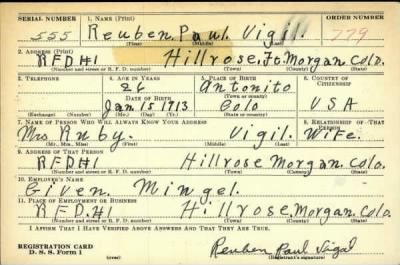 SERIAL NUMBER 1. NAME (Print) ORDER NUMBER
555 Reuben. Paul Vigil. 779
(First) (Middle) (Last)
2. ADDRESS (Print)
R.F.D.#1 Hillrose, Ft. Morgan. Colo.
(Number and street or R. F. D. number) (Town) (County) (State)
3. TELEPHONE 4. AGE IN YEARS 5. PLACE OF BIRTH 6. COUNTRY OF CITIZENSHIP
26 Antonito
DATE OF BIRTH (Town or county)
Jan. 15 1913 Colo U S A
(Exchange) (Number) (Mo.) (Day) (Yr.) (State or country)
7. NAME OF PERSON WHO WILL ALWAYS KNOW YOUR ADDRESS 8. RELATIONSHIP OF THAT PERSON
Mrs Ruby. Vigil. Wife.
(Mr., Mrs., Miss) (First) (Middle) (Last)
9. ADDRESS OF THAT PERSON
R.F.D.#1 Hillrose Morgan. Colo.
(Number and street or R. F. D. number) (Town) (County) (State)
10. EMPLOYER'S NAME
Given Mingel.
11. PLACE OF EMPLOYMENT OR BUSINESS
R.F.D.#1 Hillrose, Morgan. Colo.
(Number and street or R. F. D. number) (Town) (County) (State)
I AFFIRM THAT I HAVE VERIFIED ABOVE ANSWERS AND THAT THEY ARE TRUE.
REGISTRATION CARD
D. S. S. Form 1 (over) Reuben Paul Vigil
(Registrant's signature)